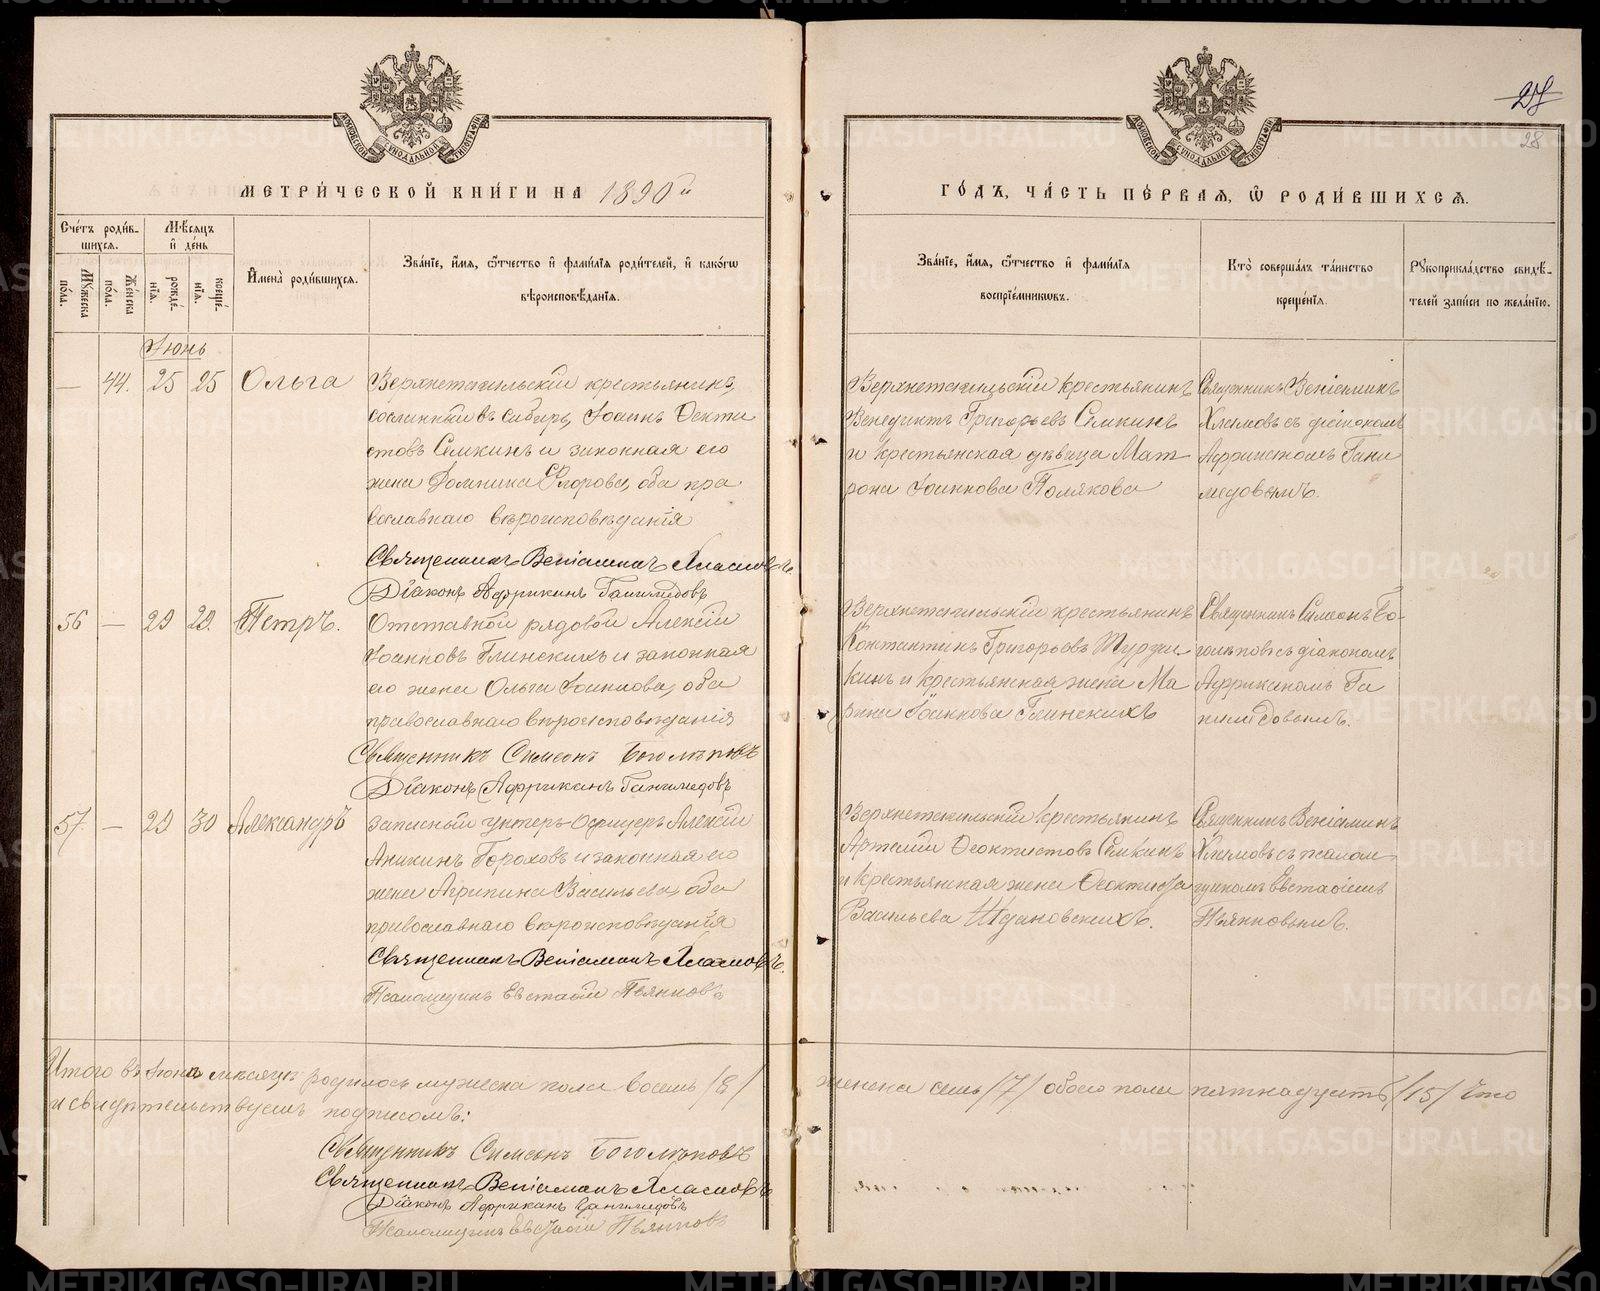 27
28
МОСКОВСКОЙ СѴНОДАЛЬНОЙ ТИПОГРАФІИ
МОСКОВСКОЙ СѴНОДАЛЬНОЙ ТИПОГРАФІИ
МЕТРИ́ЧЕСКОЙ КНИ́ГИ НА 1890й
ГО́ДЪ, ЧА́СТЬ ПЕ́РВАѦ, Ѡ҆ РОДИ́ВШИХСѦ.
Сче́тъ роди́в-
шихсѧ.
Мѣ́сѧцъ
и҆ де́нь
Мꙋ́жеска
по́ла.
Же́нска
по́ла.
рожде́-
нїѧ.
креще́-
нїѧ.
И҆мена̀ роди́вшихсѧ.
Зва́нїе, и҆́мѧ, ѻ҆́тчество и҆ фами́лїѧ роди́телей, и҆ како́гѡ
вѣроисповѣ́данїѧ.
Зва́нїе, и҆́мѧ, ѻ҆́тчество и҆ фами́лїѧ
воспрїе́мникѡвъ.
Кто̀ соверша́лъ та́инство
креще́нїѧ.
Рꙋкоприкла́дство свидѣ́-
телей за́писи по жела́нїю.
Іюнь
— 44. 25 25 Ольга
Верхнетагильскій крестьянинъ,
сосланный въ Сибирь, Іоаннъ Ѳеокти
стовъ Семкинъ и законная его
жена Домника Егорова, оба пра
вославнаго вѣроисповѣданія
Священникъ Веніаминъ Хламовъ.
Діаконъ Африканъ Ганимедовъ
Верхнетагильскій крестьянинъ
Венедиктъ Григорьевъ Семкинъ
и крестьянская дѣвица Мат
рона Іоаннова Полякова
Священникъ Веніаминъ
Хламовъ съ діакономъ
Африканомъ Гани
медовымъ.
56 — 29 29. Петръ.
Отставной рядовой Алексій
Іоанновъ Глинскихъ и законная
его жена Ольга Іоаннова, оба
православнаго вѣроисповѣданія
Священникъ Симеонъ Боголѣповъ
Діаконъ Африканъ Ганимедовъ
Верхнетагильскій крестьянинъ
Константинъ Григорьевъ
и крестьянская жена Ма
рина Іоаннова Глинскихъ
Священникъ Симеонъ Бо-
голѣповъ съ діакономъ
Африканомъ Га
нимедовымъ.
57. — 29 30 Александръ
Запасный унтеръ-офицеръ Алексій
Аникинъ Гороховъ и законная его
жена Агрипина Васильева, оба
православнаго вѣроисповѣданія
Священникъ Веніаминъ Хламовъ.
Псаломщикъ Евстафій Пьянковъ
Верхнетагильскій крестьянинъ
Артемій Ѳеоктистовъ Семкинъ
и крестьянская жена Ѳеоктиста
Васильева Ждановскихъ.
Священникъ Веніаминъ
Хламовъ съ псалом-
щикомъ Евстафіемъ
Пьянковымъ.
Итого въ Іюнѣ мѣсяцѣ родилось мужеска пола восемь /8/
женска семь /7/ обоего пола пятнадцать /15/ что
и свидѣтельствуемъ подписомъ:
Священникъ Симеонъ Боголѣповъ
Священникъ Веніаминъ Хламовъ
Діаконъ Африканъ Ганимедовъ
Псаломщикъ Евстафій Пьянковъ
METRIKI.GASO-URAL.RU